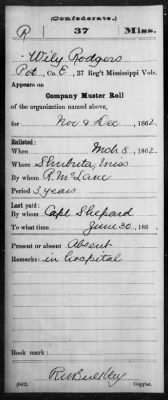 (Confederate.)
R 37 Miss.
Wily Rodgers
Pvt, Co. E, 37 Reg't Mississippi Vols.
Appears on
Company Muster Roll
of the organization named above,
for Nov & Dec, 1862.
Enlisted:
When Mch 8, 1862.
Where Shubuta, Miss
By whom R. McLane
Period 3 years
Last paid:
By whom Capt Shepard
To what time June 30, 186
Present or absent Absent
Remarks: in hospital
Book mark:
(642) Copyist.